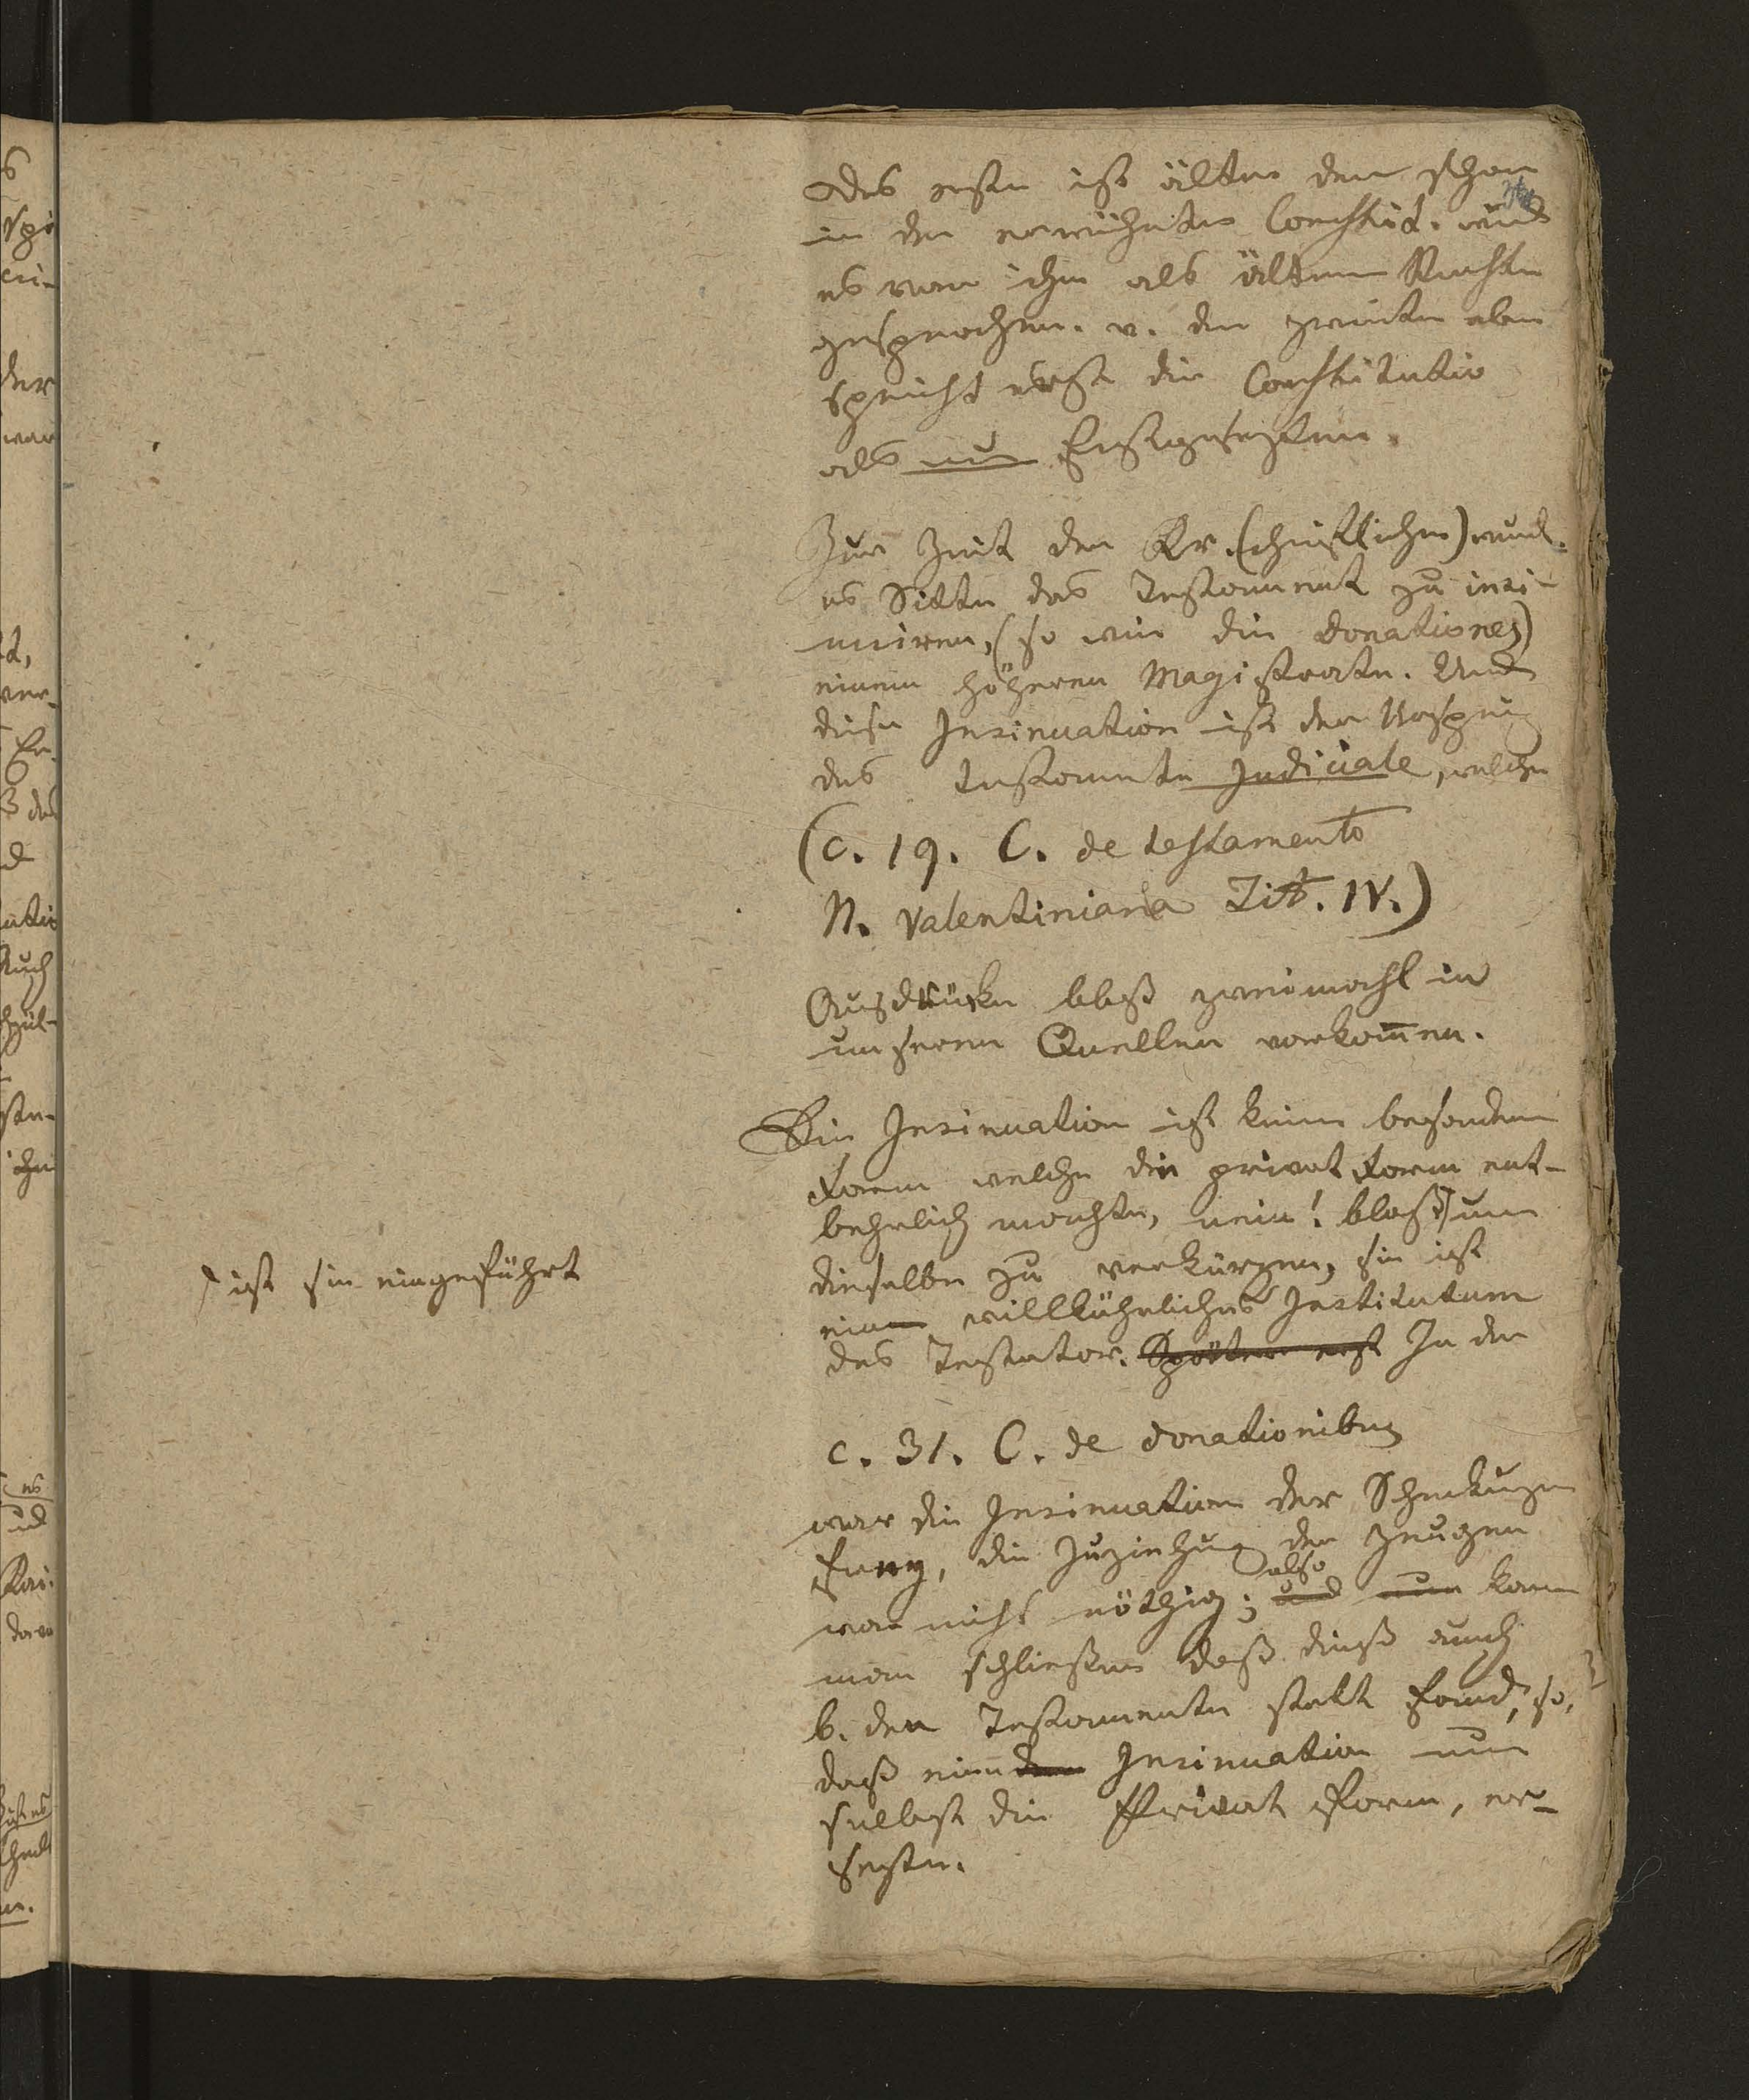 Das erste ist älter denn schon
in der erwähnten Constitut. wird
es von ihm als älterm Rechte
gesprochen. v. der zweiten aber
spricht erst die Constitutio
als nun Erstgesezten.
Zur Zeit der Kr. (christlichen) wurde
es Sitte das Testament zu insi-
nuiren, (so wie die donationes)
einem höheren Magistrate. Und
diese Insinuation ist der Ursprung
des testamente Judiciale, welche
(c. 19. C. de testamento
N. Valentiniana Tit. IV.)
Ausdrücke bloß zweimahl in
unseren Quellen vorkom̄en.
Die Insinuation ist keine besondere
Form welche die privat Form ent-
behrlich machte, nein! bloß um
dieselbe zu verkürzen, sie ist
ein willkührliches Institutum
des Testator. Später erst In der
ist sie eingeführt
c. 31. C. de donationibus
war die Insinuation der Schenkungen
genug, die Zuziehung der Zeugen
also
war nicht nöthig; und nun kann
man schließen daß dieß auch
b. den Testamenten statt fand, so,
daß eine Insinuation nun
selbst die Privat Form, er-
sezte.